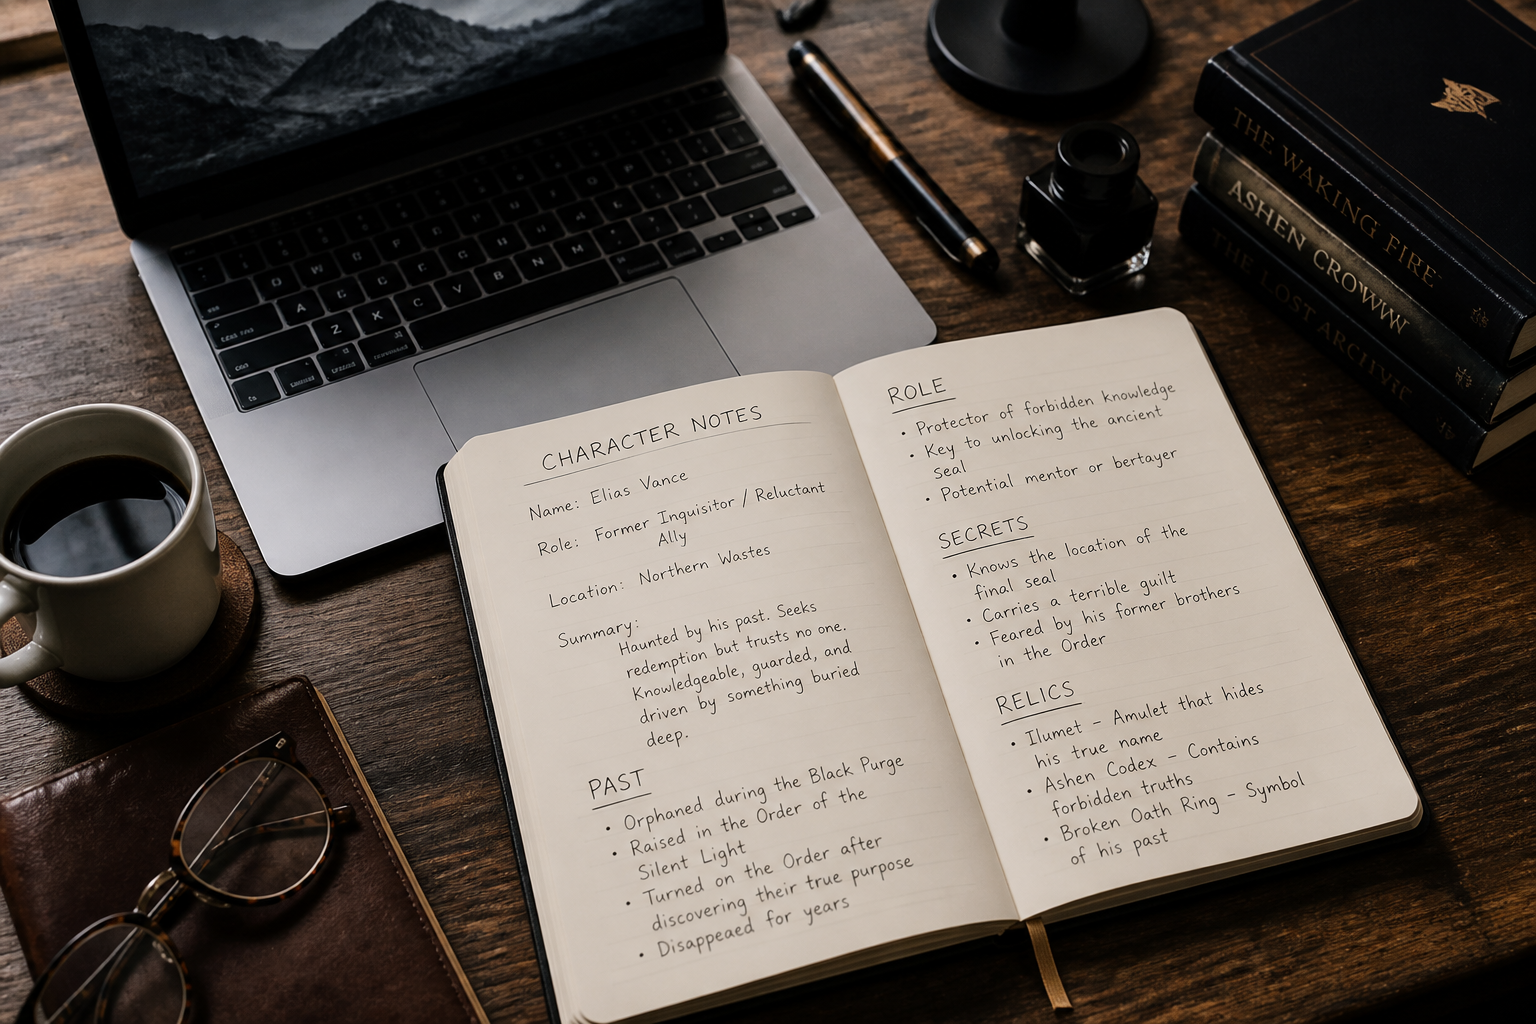 CHARACTER NOTES
Name: Elias Vance
Role: Former Inquisitor / Reluctant
Ally
Location: Northern Wastes
Summary:
Haunted by his past. Seeks
redemption but trusts no one.
Knowledgeable, guarded, and
driven by something buried
deep.
PAST
• Orphaned during the Black Purge
• Raised in the Order of the
Silent Light
• Turned on the Order after
discovering their true purpose
• Disappeaed for years
ROLE
• Protector of forbidden knowledge
• Key to unlocking the ancient
seal
• Potential mentor or bertayer
SECRETS
• Knows the location of the
final seal
• Carries a terrible guilt
• Feared by his former brothers
in the Order
RELICS
• Ilumet – Amulet that hides
his true name
• Ashen Codex – Contains
forbidden truths
• Broken Oath Ring – Symbol
of his past
THE WAKING FIRE
ASHEN CROWW
THE LOST ARCHIVE